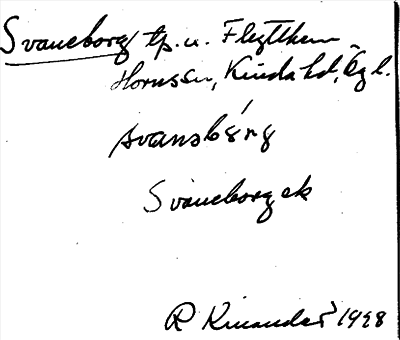 Svaneborg tp. u. Flytthem
Hornssn, Kinda hd, Ög l.
svansbórg
Svaneborg ek
R Kinander 1928